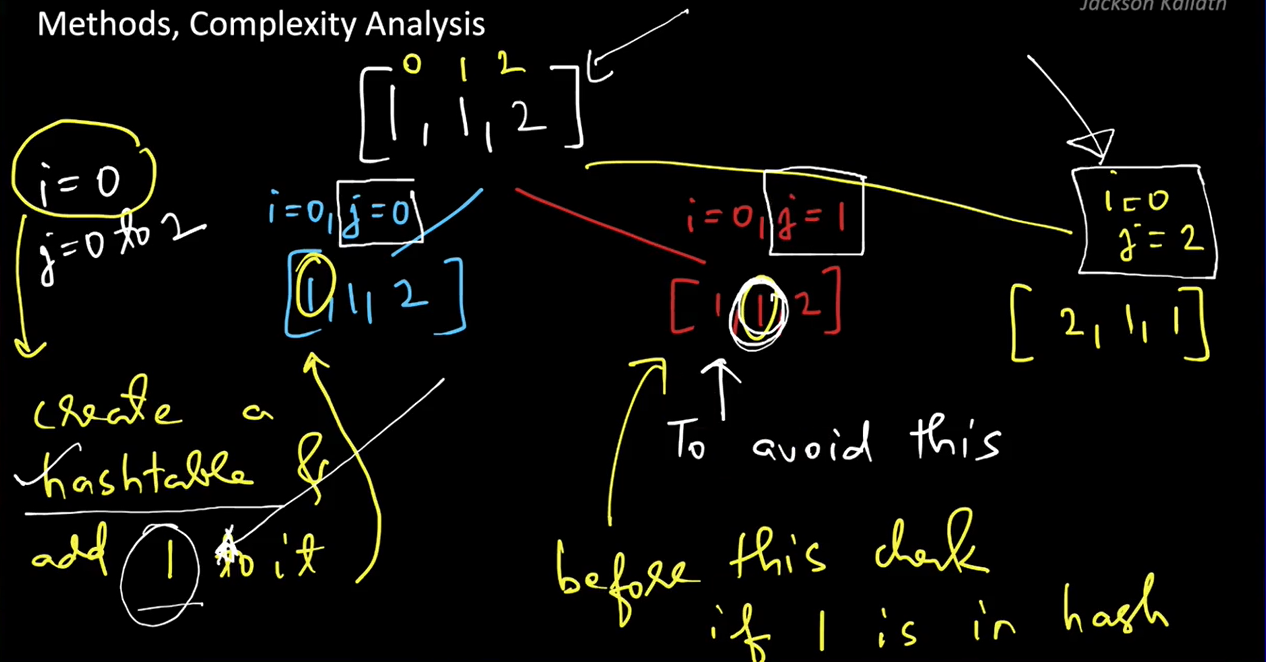 Methods, Complexity Analysis
Jackson Kailath
0 1 2
[1, 1, 2]
i=0
j=0 to 2
i=0, j=0
[1, 1, 2]
i=0, j=1
[1, 1, 2]
i=0
j=2
[2, 1, 1]
create a
hashtable &
add 1 to it
To avoid this
before this check
if 1 is in hash